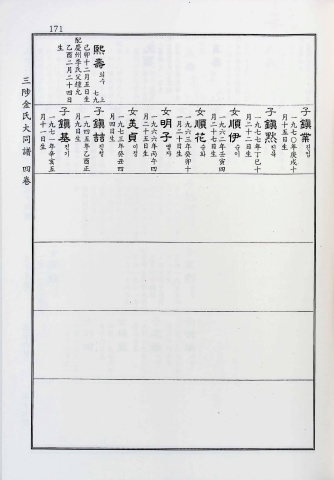 171
三陟金氏大同譜 四卷
熙壽 희수 七九 上
己卯十二月五日生
配慶州李氏父鍾允
乙酉二月二十四日
生
子鎭業 진업
一九七〇年庚戌十
月十五日生
子鎭默 진묵
一九七七年丁巳十
月二十二日生
女順伊 순이
一九六二年壬寅四
月二十七日生
女順花 순화
一九六三年癸卯十
月二十日生
女明子 명자
一九六六年丙午四
月二十五日生
女美貞 미정
一九七三年癸丑四
月四日生
子鎭喆 진철
一九四五年乙酉正
月九日生
子鎭基 진기
一九七一年辛亥五
月十一日生